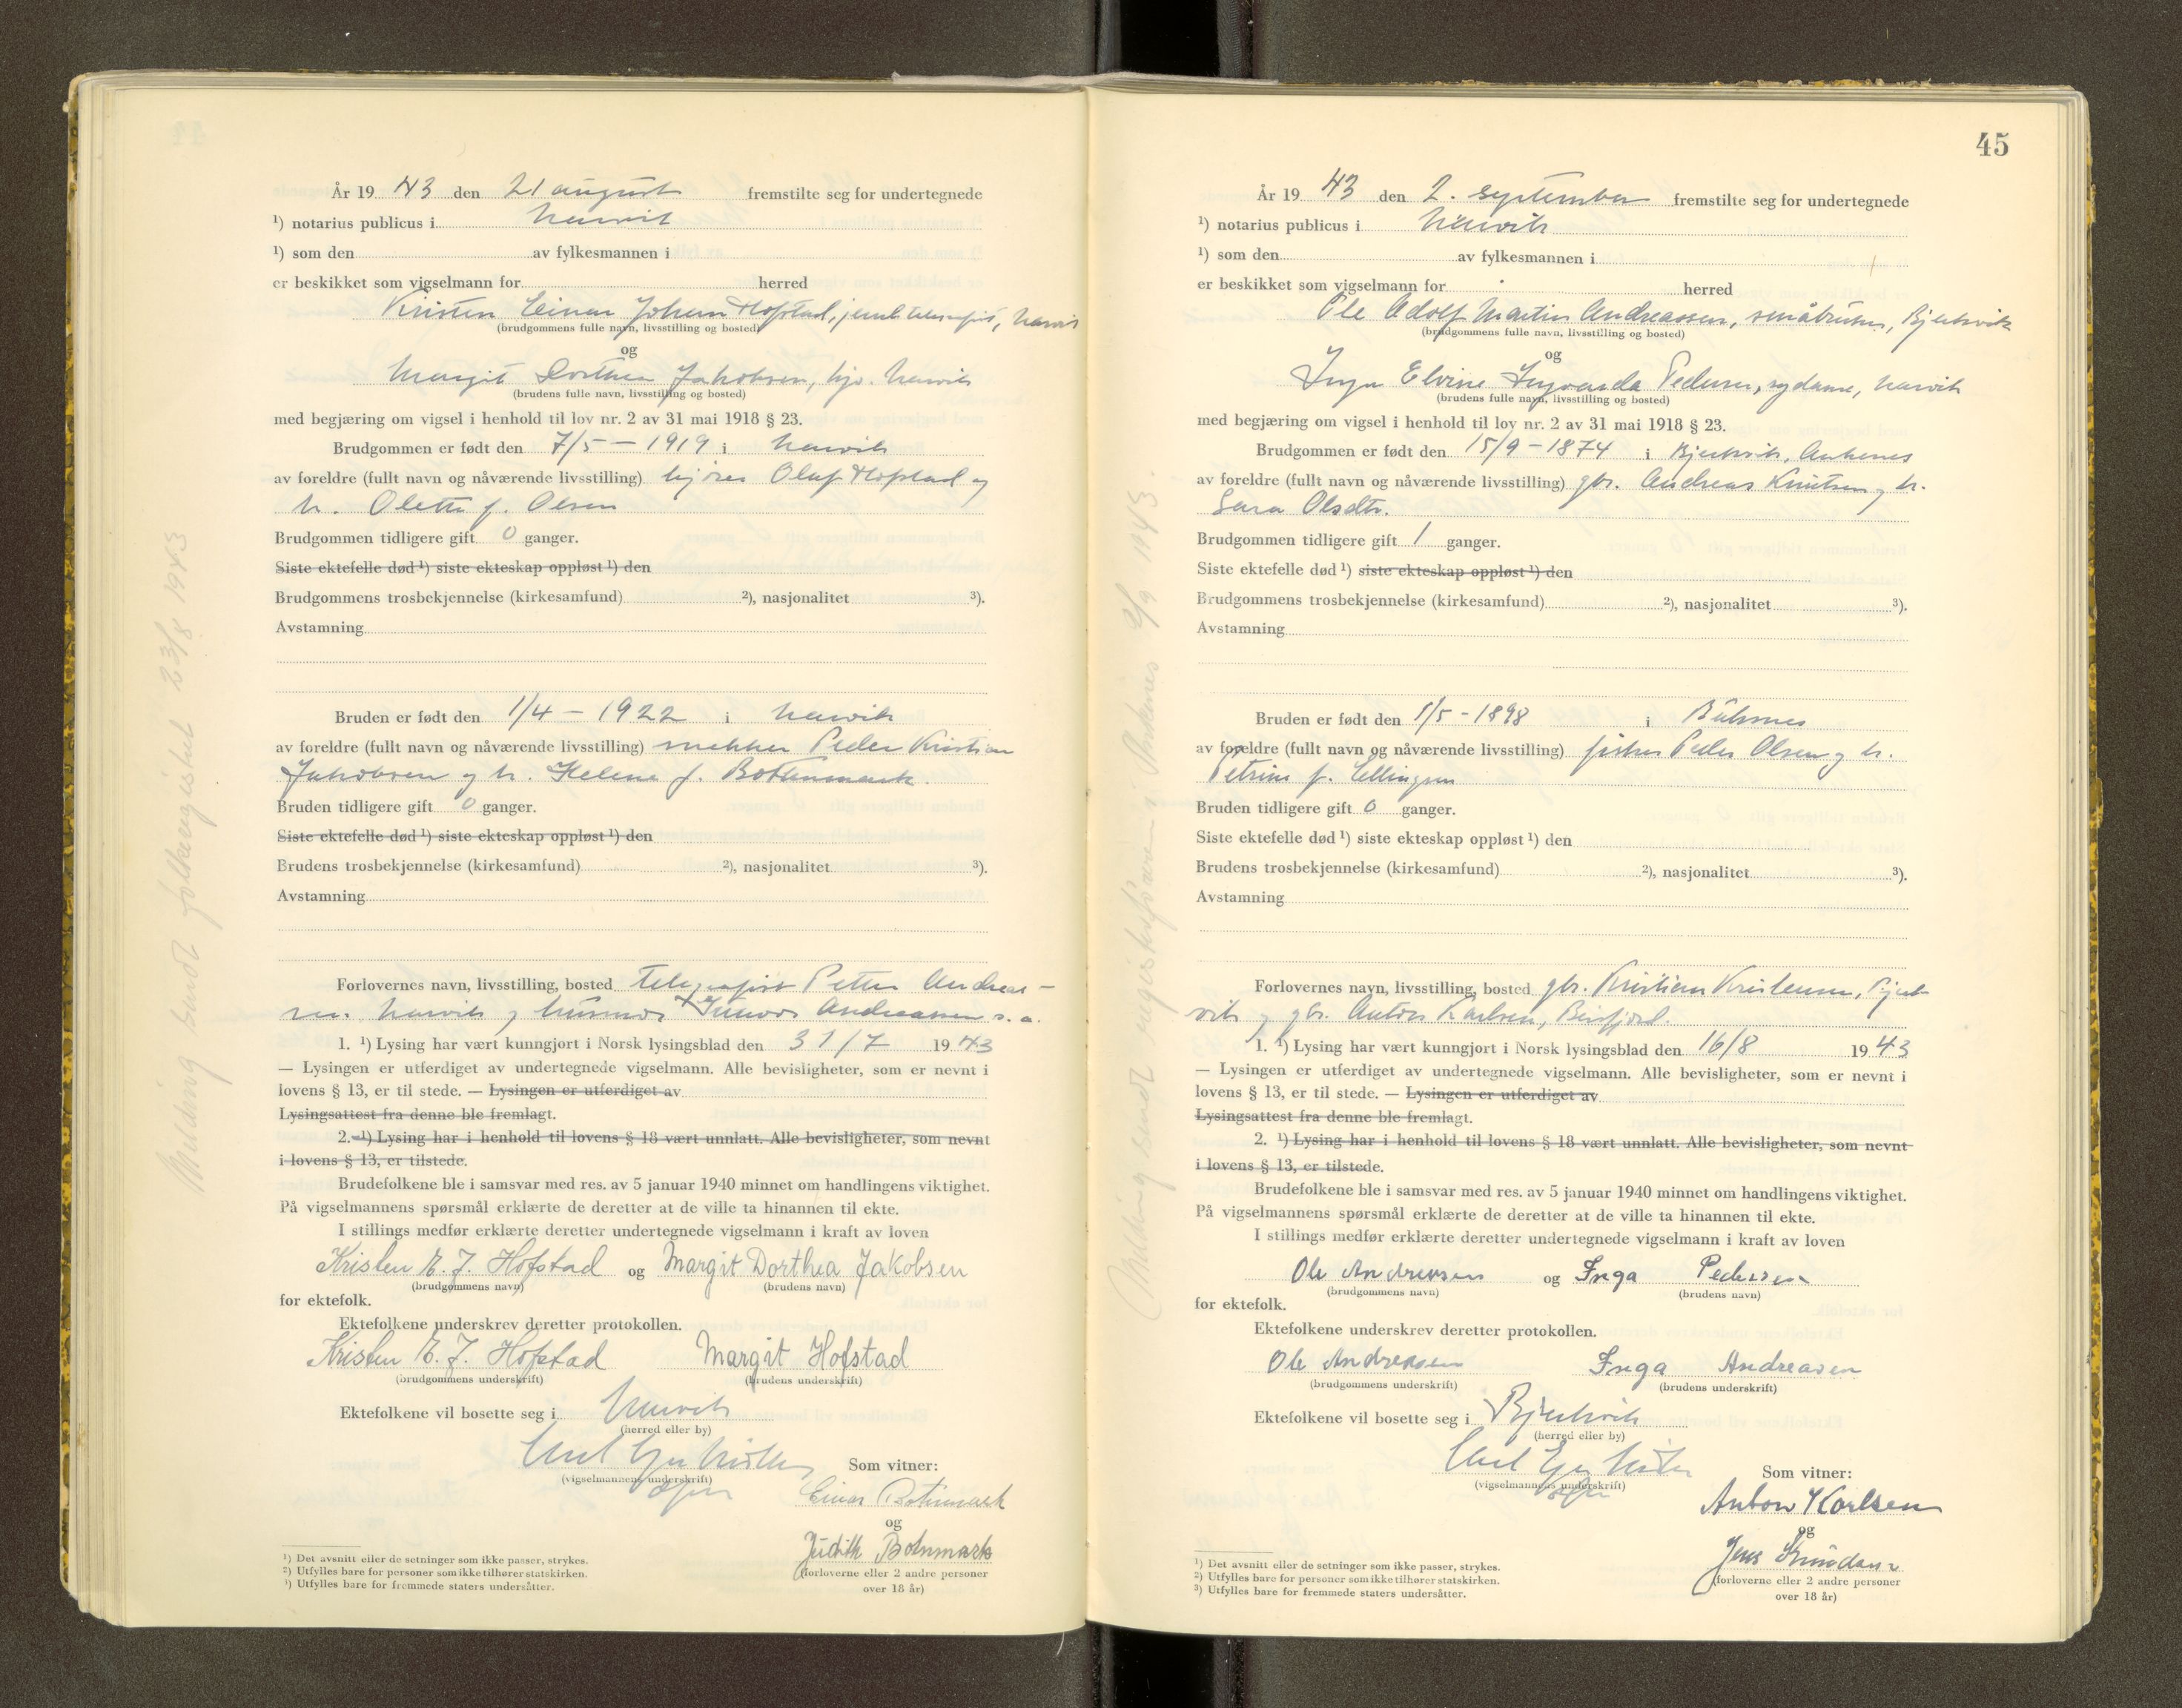 År 19 43 den 21 august fremstilte seg for undertegnede
¹) notarius publicus i Narvik
¹) som den av fylkesmannen i
er beskikket som vigselmann for herred
Kristen Einar Johan Hofstad, jernb.telegrafist, Narvik
(brudgommens fulle navn, livsstilling og bosted)
og
Margit Dorthea Jakobsen, hjv. Narvik
(brudens fulle navn, livsstilling og bosted)
med begjæring om vigsel i henhold til lov nr. 2 av 31 mai 1918 § 23.
Brudgommen er født den 7/5 – 1919 i Narvik
av foreldre (fullt navn og nåværende livsstilling) Olaf Hofstad og
h. Olette f. Olsen
Brudgommen tidligere gift 0 ganger.
Siste ektefelle død ¹) siste ekteskap oppløst ¹) den
Brudgommens trosbekjennelse (kirkesamfund) ²), nasjonalitet ³).
Avstamning
Bruden er født den 1/4 – 1922 i Narvik
av foreldre (fullt navn og nåværende livsstilling) snekker Peder Kristian
Jakobsen og h. Helene f. Bottenmark.
Bruden tidligere gift 0 ganger.
Siste ektefelle død ¹) siste ekteskap oppløst ¹) den
Brudens trosbekjennelse (kirkesamfund) ²), nasjonalitet ³).
Avstamning
Forlovernes navn, livsstilling, bosted telegrafist Petter Andreas-
sen, Narvik og husmor Andreassen s. st.
1. ¹) Lysing har vært kunngjort i Norsk lysingsblad den 31/7 19 43
— Lysingen er utferdiget av undertegnede vigselmann. Alle bevisligheter, som er nevnt i
lovens § 13, er til stede. — Lysingen er utferdiget av
Lysingsattest fra denne ble fremlagt.
2. ¹) Lysing har i henhold til lovens § 18 vært unnlatt. Alle bevisligheter, som nevnt
i lovens § 13, er tilstede.
Brudefolkene ble i samsvar med res. av 5 januar 1940 minnet om handlingens viktighet.
På vigselmannens spørsmål erklærte de deretter at de ville ta hinannen til ekte.
I stillings medfør erklærte deretter undertegnede vigselmann i kraft av loven
Kristen E. J. Hofstad og Margit Dorthea Jakobsen
(brudgommens navn) (brudens navn)
for ektefolk.
Ektefolkene underskrev deretter protokollen.
Kristen E. J. Hofstad Margit Hofstad
(brudgommens underskrift) (brudens underskrift)
Ektefolkene vil bosette seg i Narvik
(herred eller by)
(vigselmannens underskrift) Som vitner:
Einar Botnmark
og
Judith Botnmark
(forloverne eller 2 andre personer
over 18 år)
¹) Det avsnitt eller de setninger som ikke passer, strykes.
²) Utfylles bare for personer som ikke tilhører statskirken.
³) Utfylles bare for fremmede staters undersåtter.
Melding sendt folkeregistret 23/8 1943
45
År 19 43 den 2. september fremstilte seg for undertegnede
¹) notarius publicus i Narvik
¹) som den av fylkesmannen i
er beskikket som vigselmann for herred
Ole Adolf Martin Andreassen, småbruker, Bjerkvik
(brudgommens fulle navn, livsstilling og bosted)
og
Inga Elvine Ingvarda Pedersen, sydame, Narvik
(brudens fulle navn, livsstilling og bosted)
med begjæring om vigsel i henhold til lov nr. 2 av 31 mai 1918 § 23.
Brudgommen er født den 15/9 – 1874 i Bjerkvik, Ankenes
av foreldre (fullt navn og nåværende livsstilling) gbr. Andreas Knutsen og h.
Sara Olsdtr.
Brudgommen tidligere gift 1 ganger.
Siste ektefelle død ¹) siste ekteskap oppløst ¹) den
Brudgommens trosbekjennelse (kirkesamfund) ²), nasjonalitet ³).
Avstamning
Bruden er født den 1/5 - 1898 i Buksnes
av foreldre (fullt navn og nåværende livsstilling) fisker Peder Olsen og h.
Petrine f. Ellingsen
Bruden tidligere gift 0 ganger.
Siste ektefelle død ¹) siste ekteskap oppløst ¹) den
Brudens trosbekjennelse (kirkesamfund) ²), nasjonalitet ³).
Avstamning
Forlovernes navn, livsstilling, bosted gbr. Kristian Kristensen, Bjerk-
vik og gbr. Anton Karlsen, Beisfjord.
1. ¹) Lysing har vært kunngjort i Norsk lysingsblad den 16/8 19 43
— Lysingen er utferdiget av undertegnede vigselmann. Alle bevisligheter, som er nevnt i
lovens § 13, er til stede. — Lysingen er utferdiget av
Lysingsattest fra denne ble fremlagt.
2. ¹) Lysing har i henhold til lovens § 18 vært unnlatt. Alle bevisligheter, som nevnt
i lovens § 13, er tilstede.
Brudefolkene ble i samsvar med res. av 5 januar 1940 minnet om handlingens viktighet.
På vigselmannens spørsmål erklærte de deretter at de ville ta hinannen til ekte.
I stillings medfør erklærte deretter undertegnede vigselmann i kraft av loven
Ole Andreasen og Inga Pedersen
(brudgommens navn) (brudens navn)
for ektefolk.
Ektefolkene underskrev deretter protokollen.
Ole Andreasen Inga Andreasen
(brudgommens underskrift) (brudens underskrift)
Ektefolkene vil bosette seg i Bjerkvik
(herred eller by)
(vigselmannens underskrift) Som vitner:
Anton Karlsen
og
Jens
(forloverne eller 2 andre personer
over 18 år)
¹) Det avsnitt eller de setninger som ikke passer, strykes.
²) Utfylles bare for personer som ikke tilhører statskirken.
³) Utfylles bare for fremmede staters undersåtter.
Melding sendt registerføreren i Ankenes 2/9 1943.